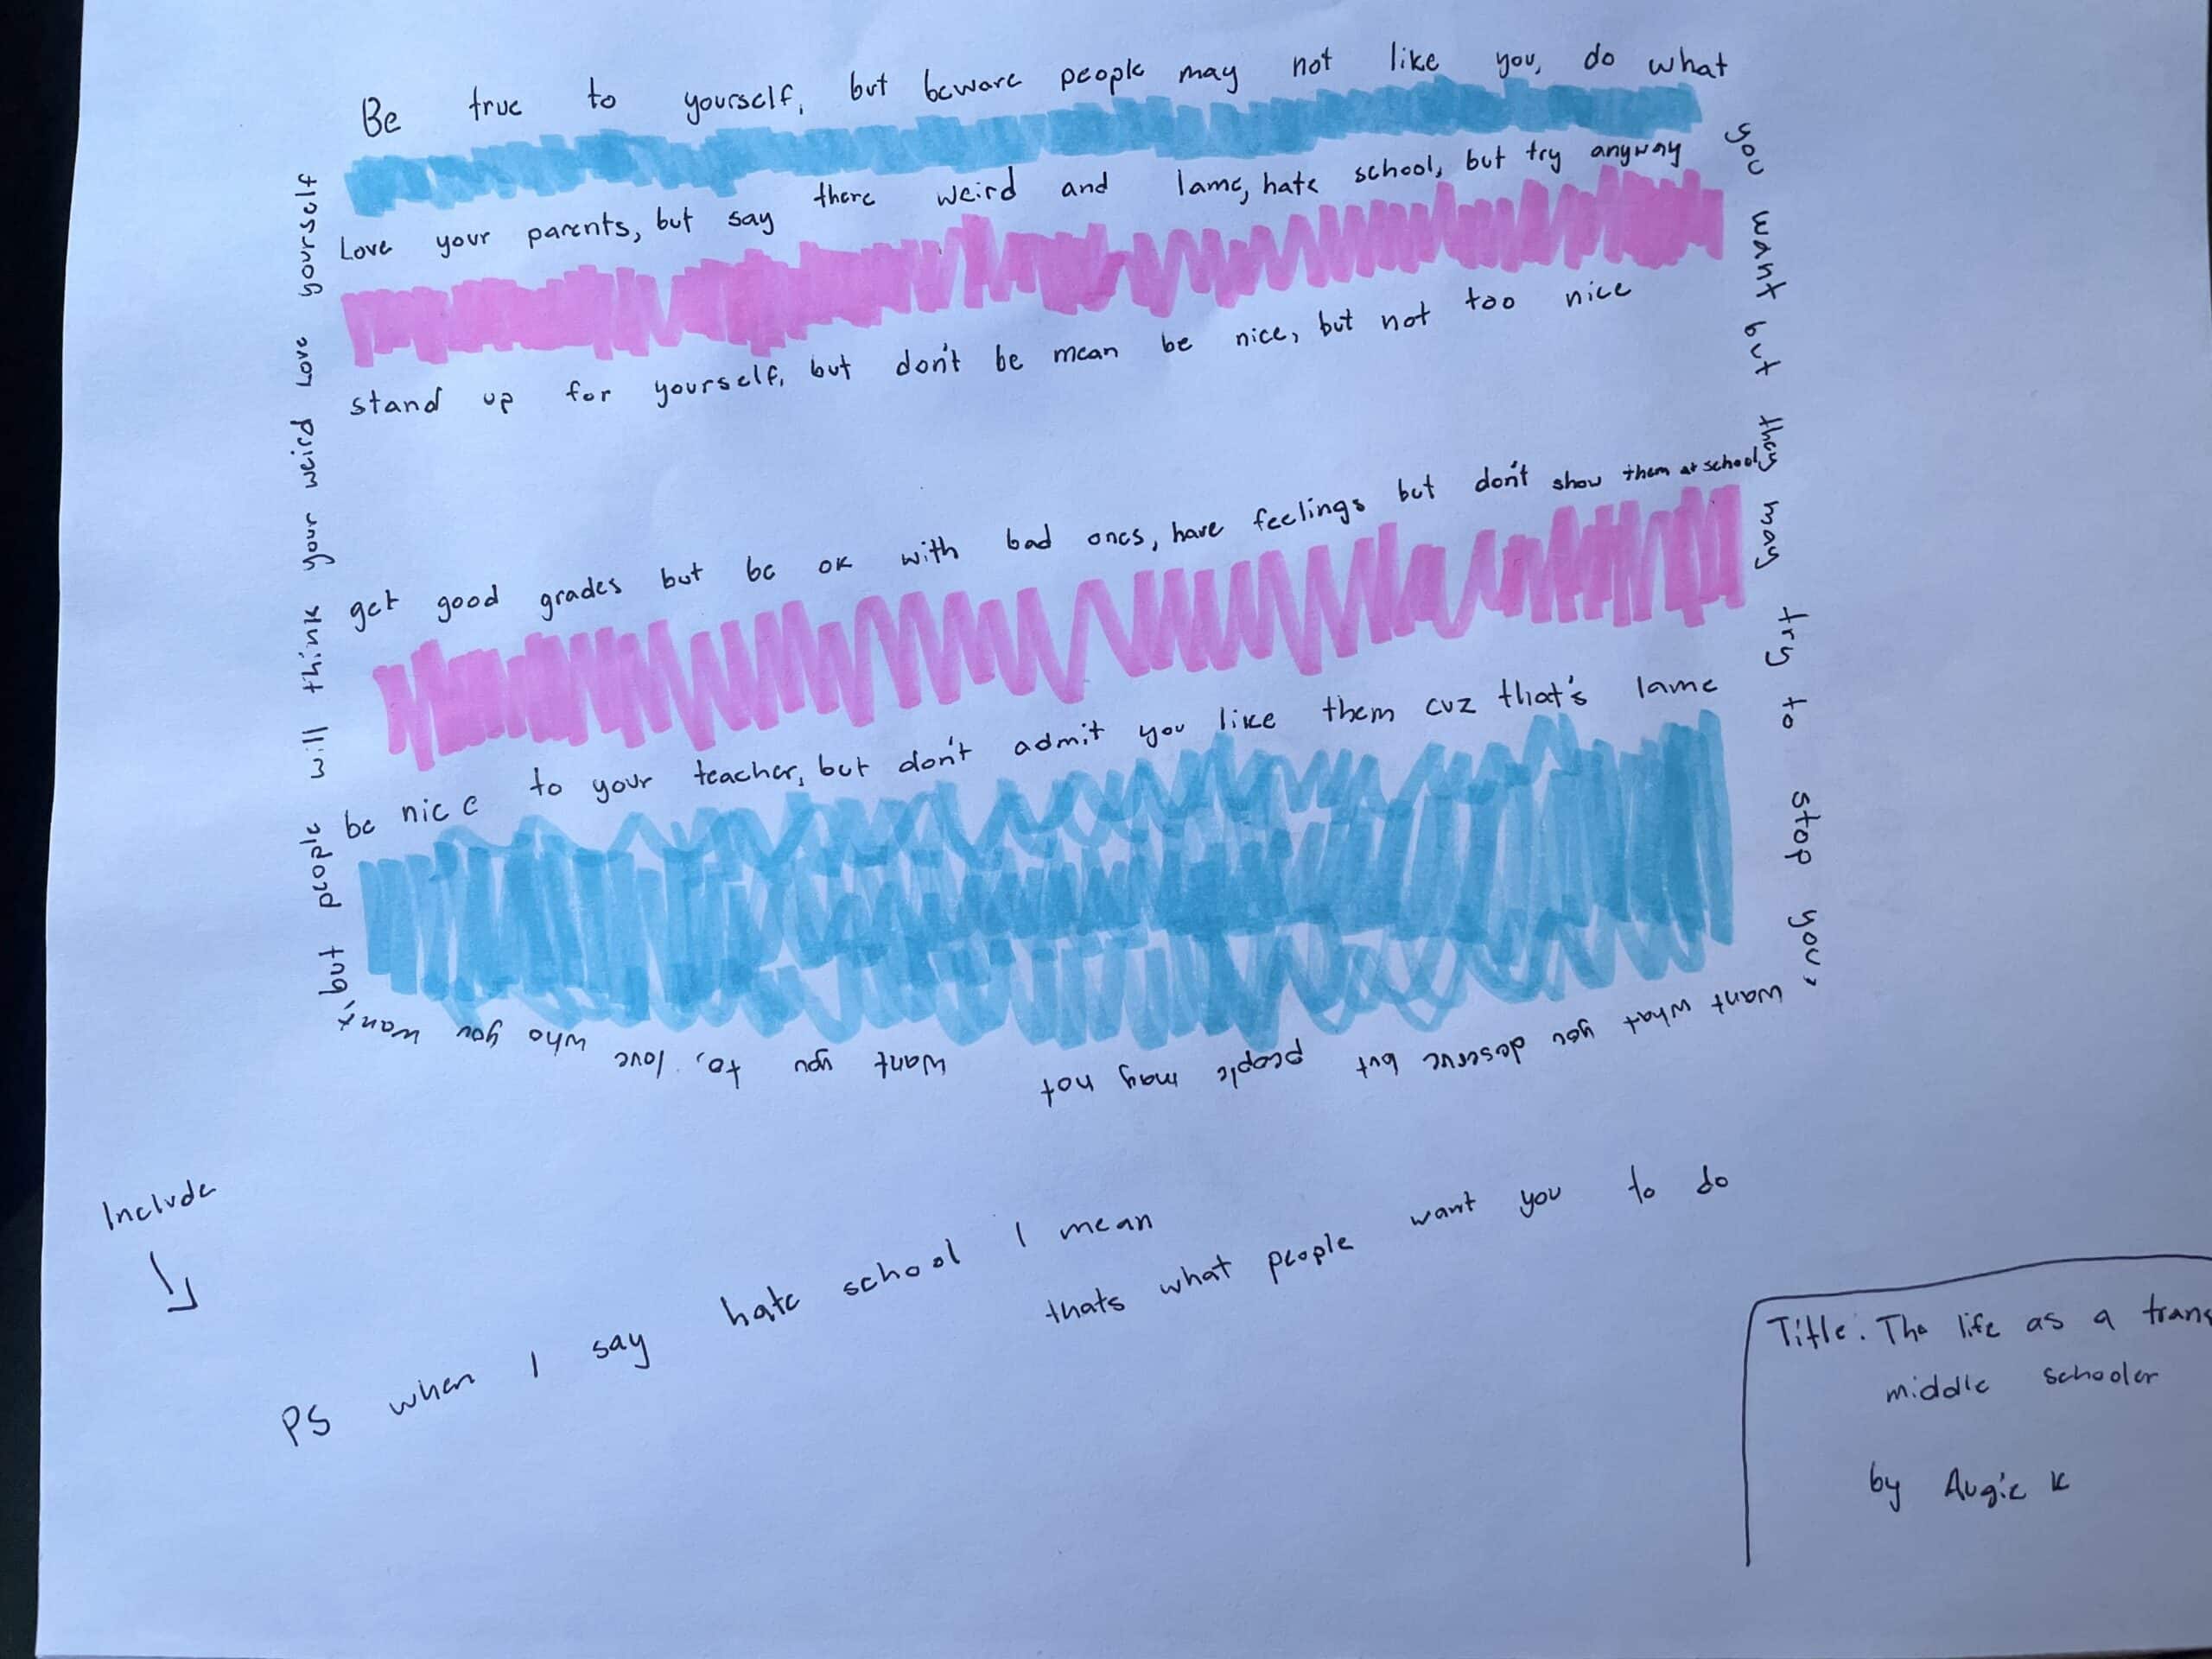 Be true to yourself, but beware people may not like you, do what
you want but they may try to stop you,
want what you deserve but people may not want you to, love who you want,
but people will think your weird Love yourself
Love your parents, but say there weird and lame, hate school, but try anyway
stand up for yourself, but don't be mean be nice, but not too nice
get good grades but be ok with bad ones, have feelings but don't show them at school
be nice to your teacher, but don't admit you like them cuz that's lame
Include
PS when I say hate school I mean
thats what people want you to do
Title: The life as a trans
middle schooler
by Augie K